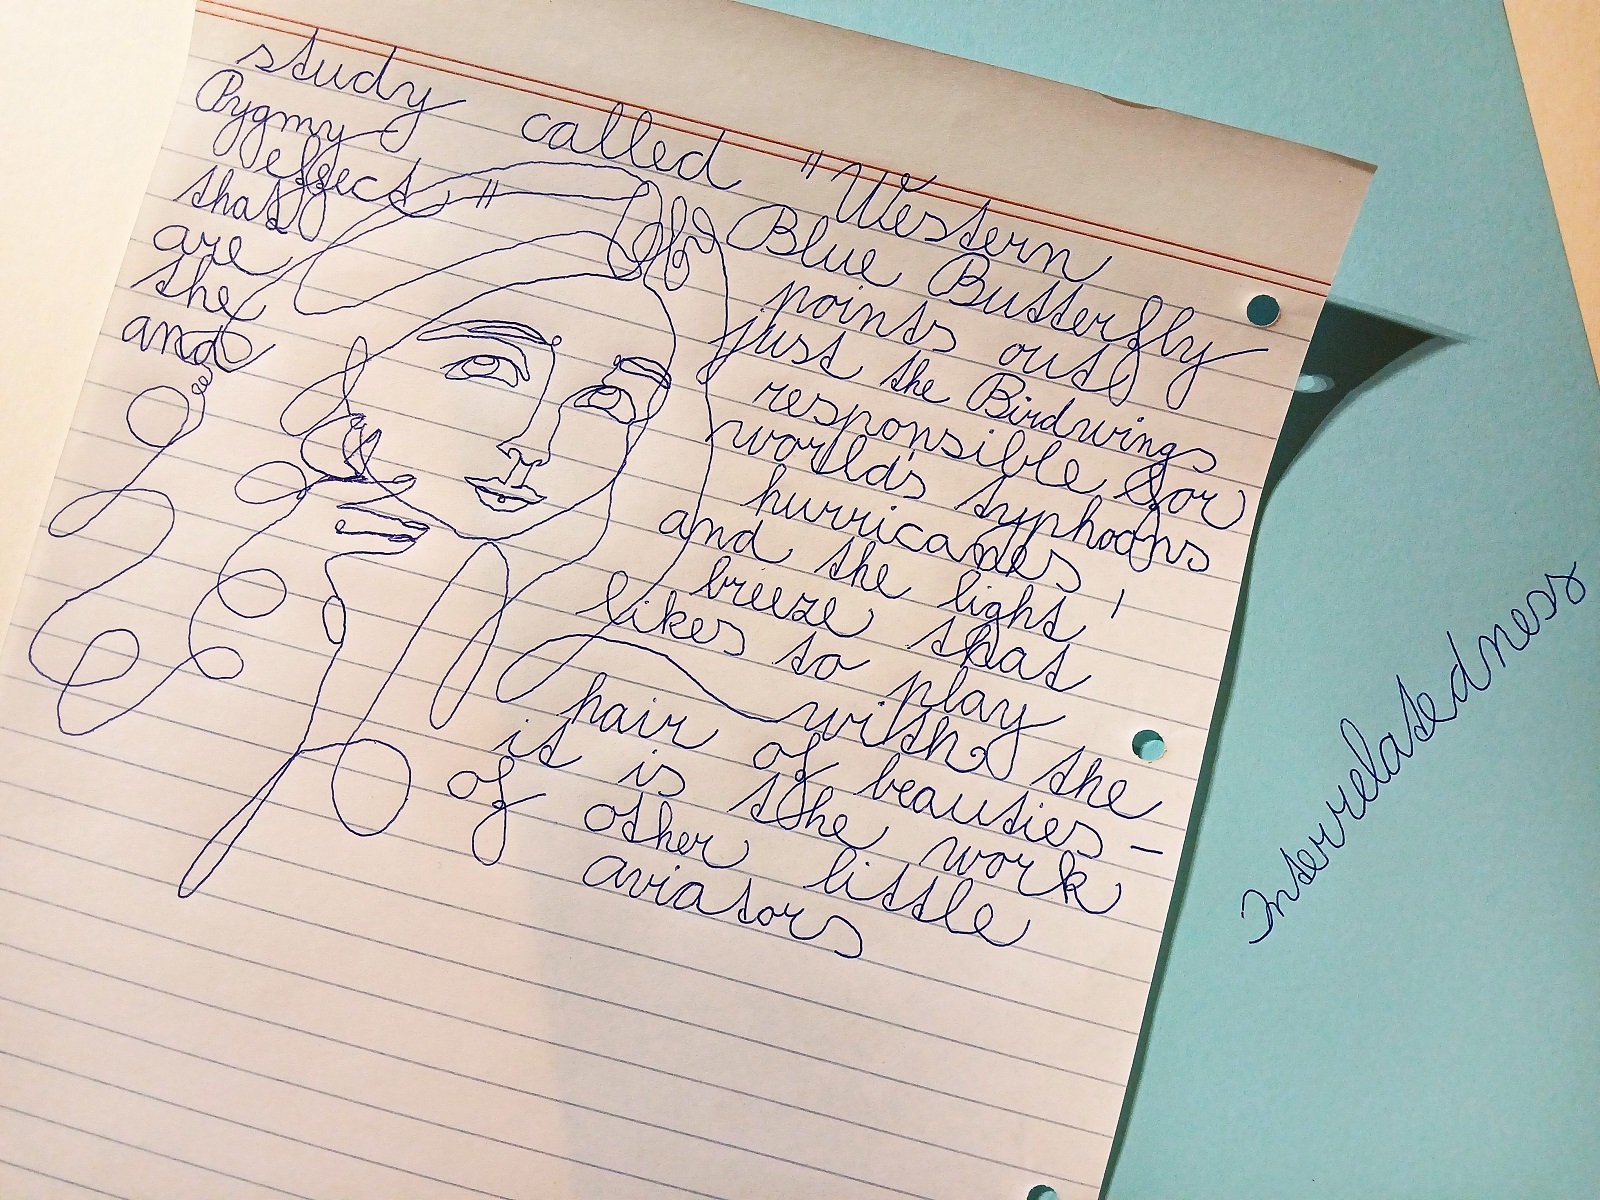 study called "Western
Pygmy Blue Butterfly
effect" points out
that just the Birdwings
are responsible for
the world's typhoons
and hurricanes,
and the light
breeze that
likes to play
with the
hair of beauties –
it is the work
of other little
aviators
Interrelatedness